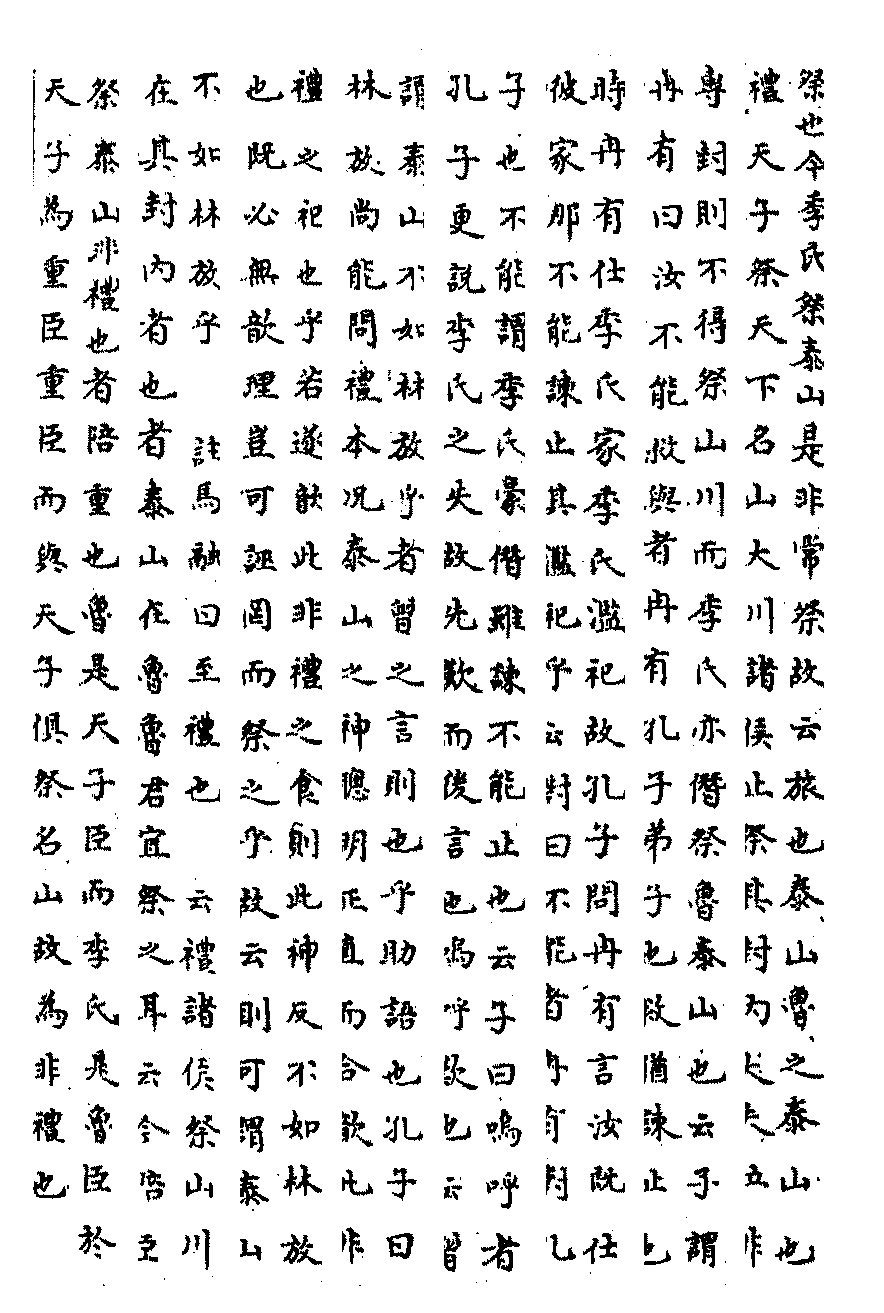 祭也今季氏祭泰山是非常祭故云旅也泰山魯之泰山也
禮天子祭天下名山大川諸侯止祭其封内大夫位非
專封則不得祭山川而季氏亦僭祭魯泰山也云子謂
冉有曰汝不能救與者冉有孔子弟子也救猶諫止也
時冉有仕季氏家季氏濫祀故孔子問冉有言汝既仕
彼家那不能諫止其濫祀乎云對曰不能者冉有對孔
子也不能謂季氏豪僭雖諫不能止也云子曰嗚呼者
孔子更說季氏之失故先歎而後言也嗚呼歎也云曾
謂泰山不如林放乎者曾之言則也乎助語也孔子曰
林放尚能問禮本況泰山之神聰明正直而合歆此非
禮之祀也乎若遂歆此非禮之食則此神反不如林放
也既必無歆理豈可誣罔而祭之乎故云則可謂泰山
不如林放乎 註馬融曰至禮也 云禮諸侯祭山川
在其封内者也者泰山在魯魯君宜祭之耳云今陪臣
祭泰山非禮也者陪重也魯是天子臣而季氏是魯臣於
天子為重臣重臣而與天子俱祭名山故為非禮也